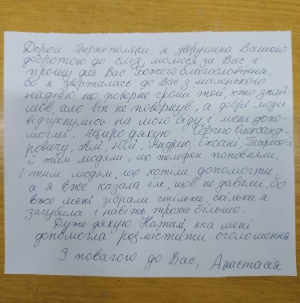 Дорогі Тернополяни, я зворушена Вашою
добротою до сліз, молюся за Вас і
прошу для Вас Божого благословіння.
Бо я зверталась до Вас з маленькою
надією, що поверне гроші той хто знай-
шов, але він не повернув, а добрі люди
відгукнулись на мою біду і мені допо-
могли. Щиро дякую Сергію Олександ-
ровичу, Юлі, Андрію, Оксані
і тим людям, що телефон поповняли,
і тим людям, що хотіли допомогти,
а я вже казала їм, щоб не давали, бо
вже мені зібрали стільки, скільки я
загубила і навіть трохи більше.
Дуже дякую Наталі, яка мені
допомогла розмістити оголошення
З повагою до Вас, Анастасія